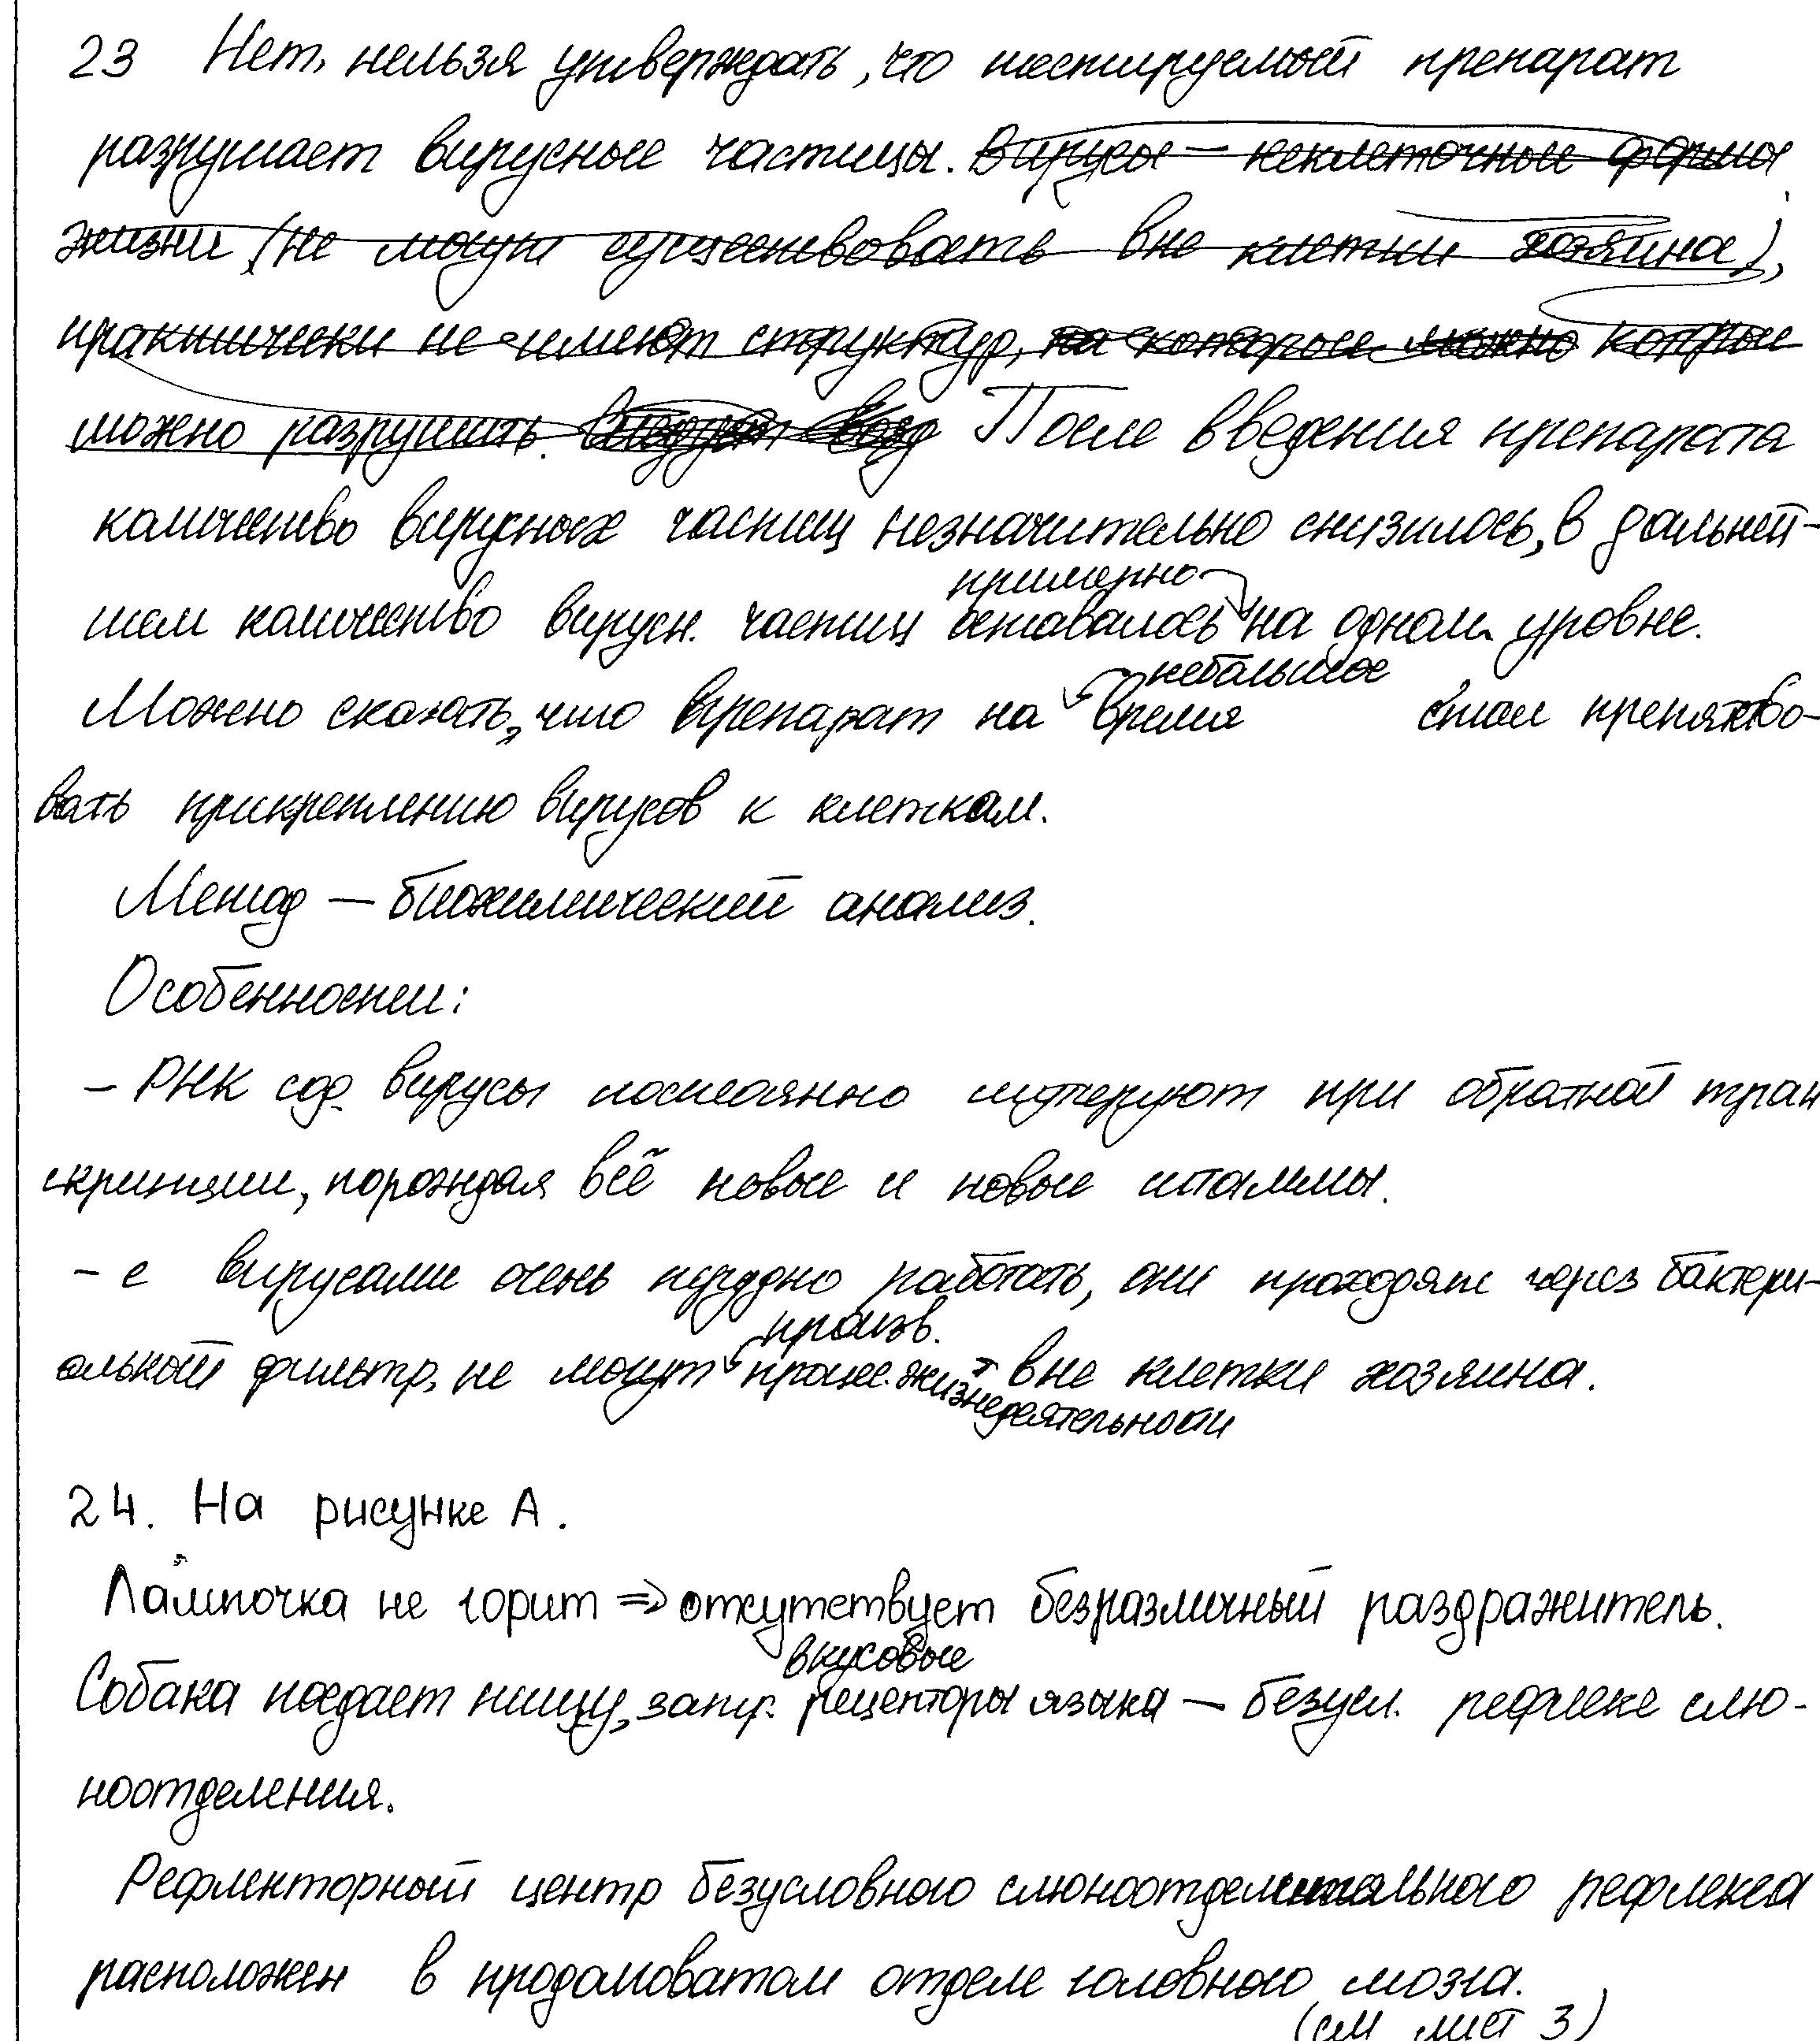 23 Нет, нельзя утверждать, что тестируемый препарат
разрушает вирусные частицы. Вирусы – неклеточные формы
жизни (не могут существовать вне клетки хозяина),
практически не имеют структур, на которые можно которые
можно разрушить. После введения препарата
количество вирусных частиц незначительно снизилось, в дальней-
шем количество вирусн. частиц оставалось примерно на одном уровне.
Можно сказать, что препарат на небольшое время стал препятство-
вать прикреплению вирусов к клеткам.
Метод – биохимический анализ.
Особенности:
– РНК сод. вирусы постоянно мутируют при обратной тран
скрипции, порождая всё новые и новые штаммы.
– с вирусами очень трудно работать, они проходят через бактери-
альный фильтр, не могут произв. процес. жизнедеятельности вне клетки хозяина.
24. На рисунке А.
Лампочка не горит => отсутствует безразличный раздражитель.
Собака поедает пищу, запу. вкусовые рецепторы языка – безусл. рефлекс слю-
ноотделения.
Рефлекторный центр безусловного слюноотделительного рефлекса
расположен в продолговатом отделе головного мозга.
(см лист 3)